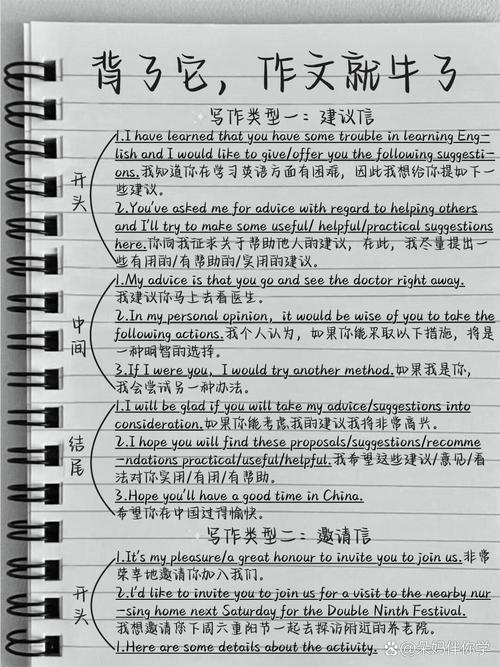 背了它，作文就牛了
写作类型一：建议信
开头
1.I have learned that you have some trouble in learning Eng-
lish and I would like to give/offer you the following suggesti-
ons.我知道你在学习英语方面有困难，因此我想给你提如下一
些建议。
2.You've asked me for advice with regard to helping others
and I'll try to make some useful/ helpful/practical suggestions
here.你向我征求关于帮助他人的建议，在此，我尽量提出一
些有用的/有帮助的/实用的建议。
中间
1.My advice is that you go and see the doctor right away.
我建议你马上去看医生。
2.In my personal opinion, it would be wise of you to take the
following actions.我个人认为，如果你能采取以下措施，将是
一种明智的选择。
3.If I were you, I would try another method.如果我是你，
我会尝试另一种办法。
结尾
1.I will be glad if you will take my advice/suggestions into
consideration.如果你能考虑我的建议我将非常高兴。
2.I hope you will find these proposals/suggestions/recomme
-ndations practical/useful/helpful.我希望这些建议/意见/看
法对你实用/有用/有帮助。
3.Hope you'll have a good time in China.
希望你在中国过得愉快。
写作类型二：邀请信
开头
1.It's my pleasure/a great honour to invite you to join us.非常
荣幸地邀请你加入我们。
2.I'd like to invite you to join us for a visit to the nearby nur
-sing home next Saturday for the Double Ninth Festival.
我想邀请你下周六重阳节一起去探访附近的养老院。
1.Here are some details about the activity.
@朵妈伴你学